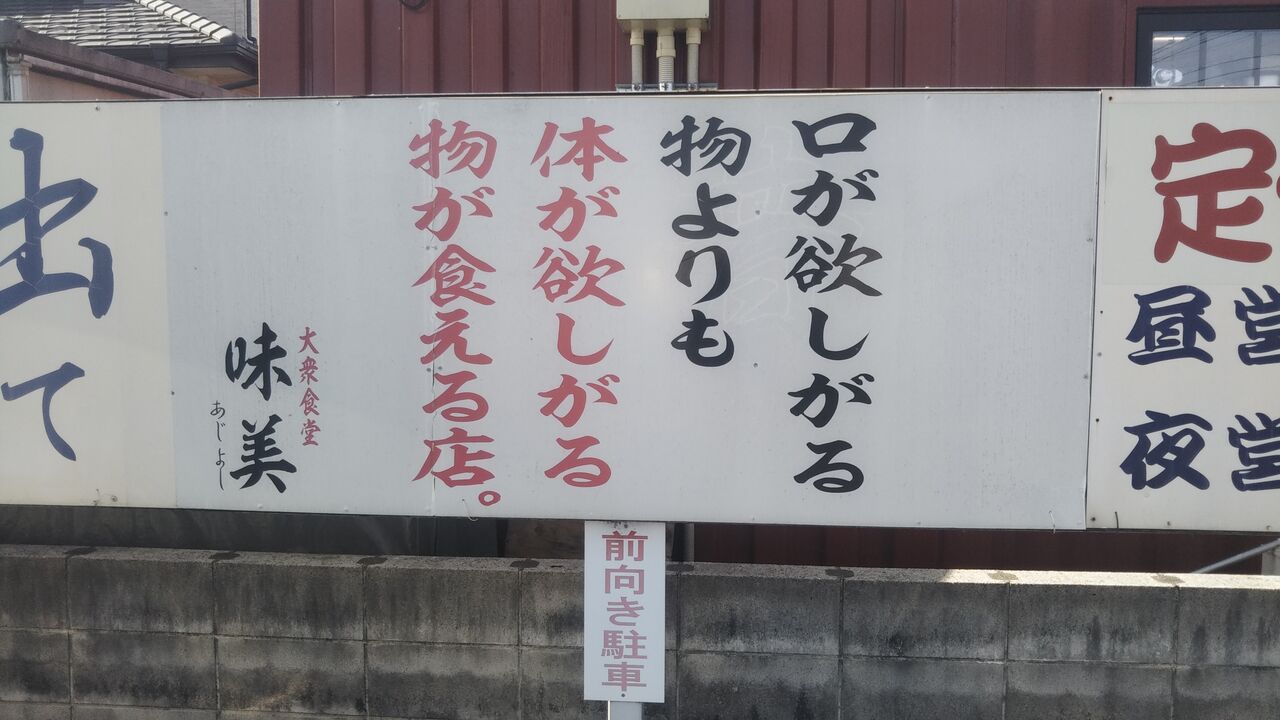 口が欲しがる
物よりも
体が欲しがる
物が食える店。
大衆食堂
味美
あじよし
前向き駐車
定
昼営
夜営
出て